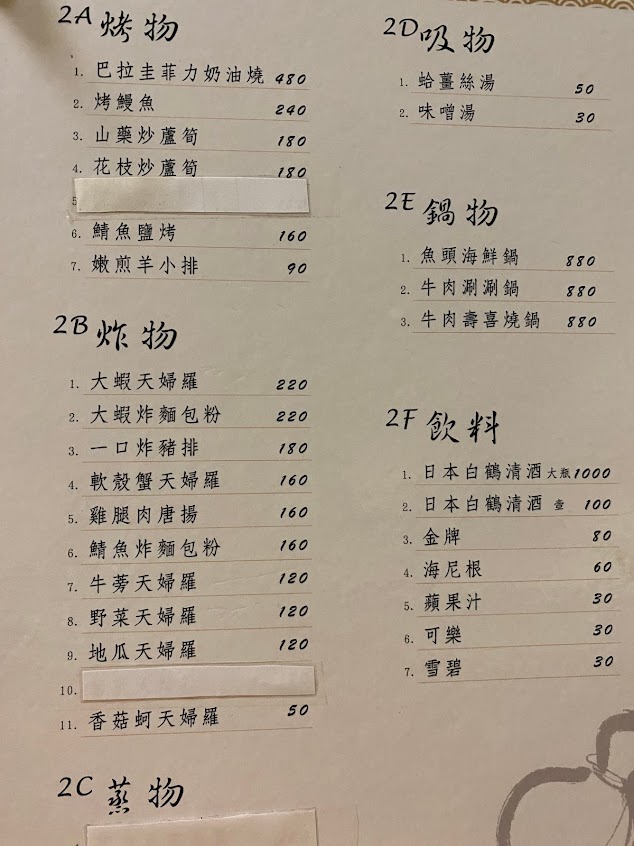 2A 烤物
1. 巴拉圭菲力奶油燒 480
2. 烤鰻魚 240
3. 山藥炒蘆筍 180
4. 花枝炒蘆筍 180
5
6. 鯖魚鹽烤 160
7. 嫩煎羊小排 90
2B 炸物
1. 大蝦天婦羅 220
2. 大蝦炸麵包粉 220
3. 一口炸豬排 180
4. 軟殼蟹天婦羅 160
5. 雞腿肉唐揚 160
6. 鯖魚炸麵包粉 160
7. 牛蒡天婦羅 120
8. 野菜天婦羅 120
9. 地瓜天婦羅 120
10.
11. 香菇蚵天婦羅 50
2C 蒸物
2D 吸物
1. 蛤薑絲湯 50
2. 味噌湯 30
2E 鍋物
1. 魚頭海鮮鍋 880
2. 牛肉涮涮鍋 880
3. 牛肉壽喜燒鍋 880
2F 飲料
1. 日本白鶴清酒 大瓶 1000
2. 日本白鶴清酒 壺 100
3. 金牌 80
4. 海尼根 60
5. 蘋果汁 30
6. 可樂 30
7. 雪碧 30